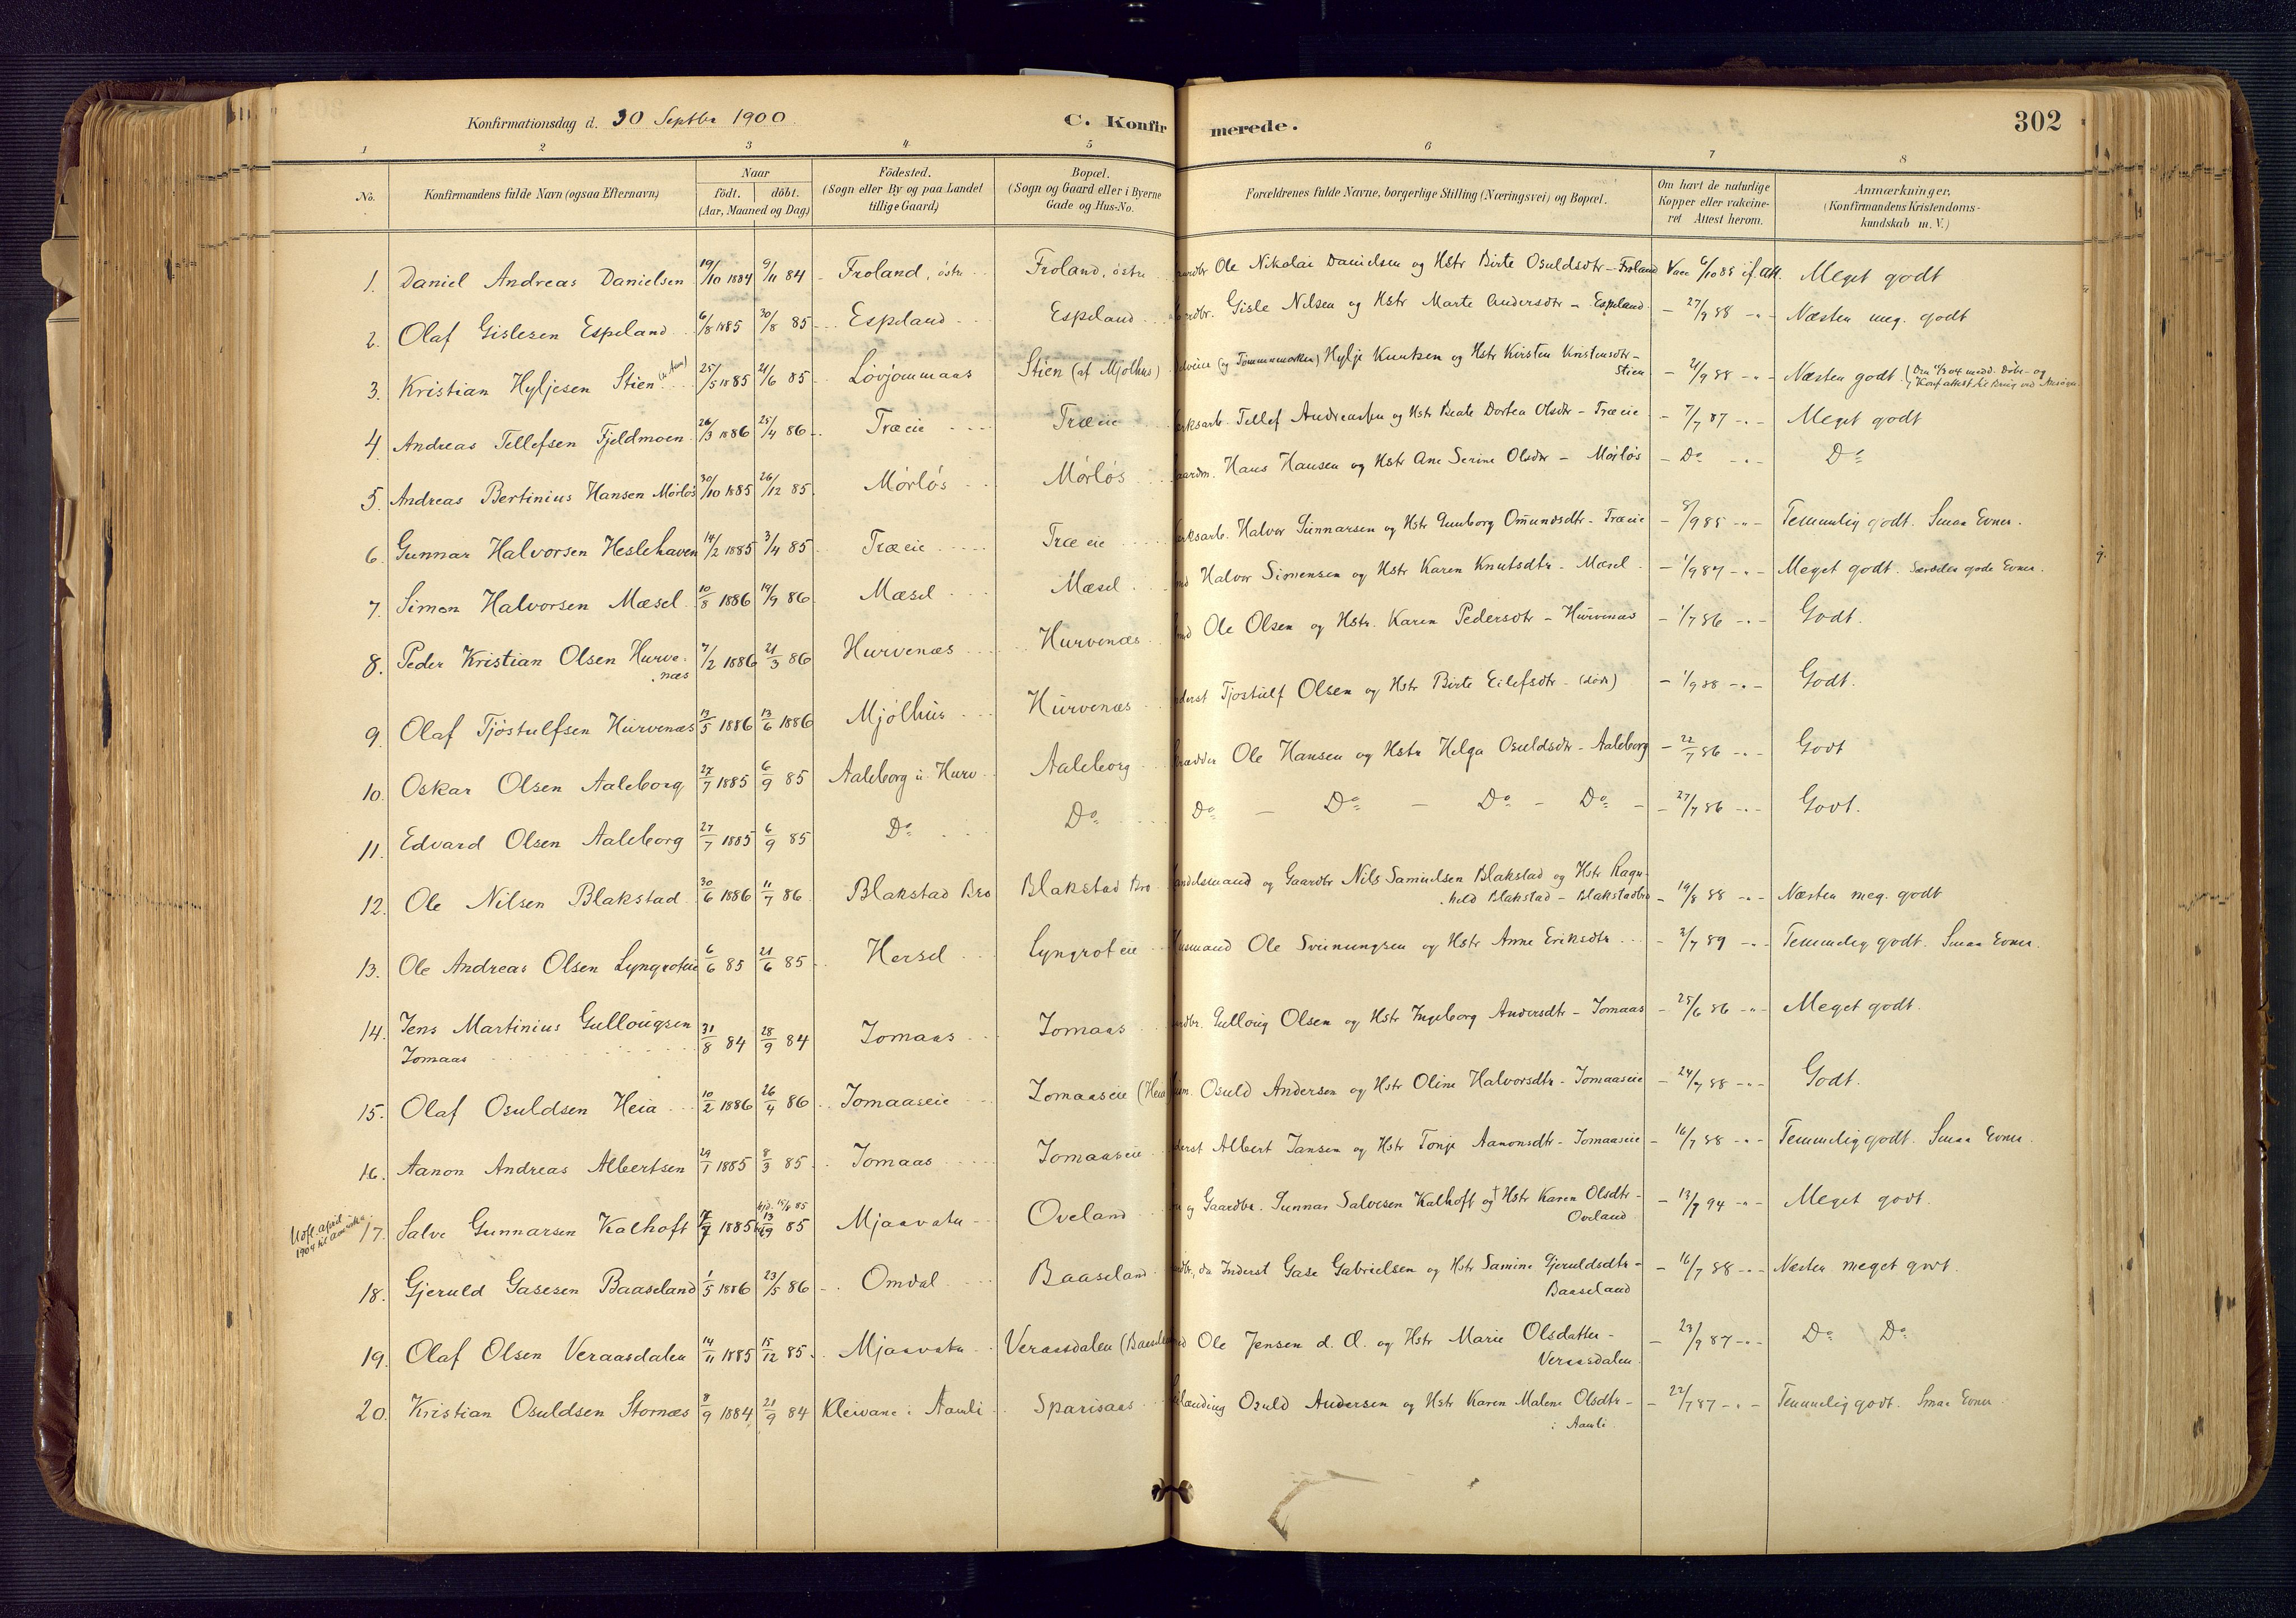 Konfirmationsdag d. 30 Septbr 1900. C. Konfirmerede. 302
1 2 3 4 5 6 7 8
No. Konfirmandens fulde Navn (ogsaa Efternavn) Naar födt. döbt. (Aar, Maaned og Dag) Födested. (Sogn eller By og paa Landet tillige Gaard) Bopæl. (Sogn og Gaard eller i Byerne Gade og Hus-No. Forældrenes fulde Navne, borgerlige Stilling (Næringsvei) og Bopæl. Om havt de naturlige Kopper eller vakcineret Attest herom. Anmærkninger, (Konfirmandens Kristendomskundskab m. V.)
1. Daniel Andreas Danielsen 19/10 1884 9/11 84 Froland, östre Froland, östre Ole Nikolai Danielsen og Hstr Birte Osuldsdtr – Froland Vacc 6/10 85 if. att. Meget godt
2. Olaf Gislesen Espeland 6/8 1885 30/8 85 Espeland Espeland Gisle Nilsen og Hstr Marte Andersdtr – Espeland – 27/9 88 – " – Næsten meg. godt
3. Kristian Hyljesen Stien 25/5 1885 21/6 85 Lövjommaas Stien (af Mjölhus) Hylje Knutsen og Hstr Kirsten Kristensdtr – Stien – 21/9 88 – " – Næsten godt
4. Andreas Tellefsen Fjeldmoen 26/3 1886 25/4 86 Træeie Træeie Tellef Andreassen og Hstr Beate Dortea Olsdtr – Træeie – 7/7 87 – " – Meget godt
5. Andreas Bertinius Hansen Mörlös 30/10 1885 26/12 85 Mörlös Mörlös Hans Hansen og Hstr Ane Serine Olsdtr – Mörlös – Do – " – Do
6. Gunnar Halvorsen Heslehaven 14/2 1885 3/4 85 Træeie Træeie Halvor Gunnarsen og Hstr Gunborg Omundsdtr – Træeie – 8/9 85 – " – Temmelig godt. Smaa Evner.
7. Simon Halvorsen Mæsel 10/8 1886 19/9 86 Mæsel Mæsel Halvor Simensen og Hstr Karen Knutsdtr – Mæsel – 1/9 87 – " – Meget godt. Særdeles gode Evner.
8. Peder Kristian Olsen Hurvenæs 7/2 1886 21/3 86 Hurvenæs Hurvenæs Ole Olsen og Hstr. Karen Pedersdtr – Hurvenæs – 1/7 86 – " – Godt.
9. Olaf Tjöstulfsen Hurvenæs 13/5 1886 13/6 1886 Mjölhus Hurvenæs Tjöstulf Olsen og Hstr Birte Eilefsdtr – (död) – 1/9 88 – " – Godt.
10. Oskar Olsen Aaleborg 27/7 1885 6/9 85 Aaleborg u. Hurv. Aaleborg Ole Hansen og Hstr Helga Osuldsdtr – Aaleborg – 22/7 86 – " – Godt
11. Edvard Olsen Aaleborg 27/7 1885 6/9 85 Do Do Do – Do – Do – Do – – 27/7 86 – " – Godt.
12. Ole Nilsen Blakstad 30/6 1886 11/7 86 Blakstad Bro Blakstad Bro og Gaardbr Nils Samuelsen Blakstad og Hstr Ragnhild Blakstad – Blakstadbro – 19/8 88 – " – Næsten meg. godt
13. Ole Andreas Olsen Lyngroteie 6/6 85 21/6 85 Hersel Lyngroteie Husmand Ole Sveinungsen og Hstr Anne Eriksdtr – 2/7 89 – " – Temmelig godt. Smaa Evner.
14. Jens Martinius Gullougsen Jomaas 31/8 84 28/9 84 Jomaas Jomaas Gulloug Olsen og Hstr Ingeborg Andersdtr – Jomaas – 25/6 86 – " – Meget godt.
15. Olaf Osuldsen Heia 10/2 1886 26/4 86 Jomaaseie Jomaaseie (Heia Osuld Andersen og Hstr Oline Halvorsdtr – Jomaaseie – 24/7 88 – " – Godt.
16. Aanon Andreas Albertsen 29/1 1885 8/3 85 Jomaas Jomaaseie Albert Jansen og Hstr Tonje Aanonsdtr – Jomaaseie – 16/7 88 – " – Temmelig godt. Smaa Evner.
Udfl. april 1904 til Amerika. 17. Salve Gunnarsen Kalhoft 1885 13/9 85 Mjaavatn Oveland og Gaardbr. Gunnar Salvesen Kalhoft og † Hstr Karen Olsdtr – Oveland – 13/7 94 – " – Meget godt.
18. Gjeruld Gasesen Baaseland 1/5 1886 23/5 86 Omdal Baaseland Inderst Gase Gabrielsen og Hstr Samine Gjeruldsdtr – Baaseland – 16/7 88 – " – Næsten meget godt.
19. Olaf Olsen Veraasdalen 14/11 1885 15/12 85 Mjaavatn Veraasdalen Ole Jensen d. Æ. og Hstr Marie Olsdatter – Veraasdalen – 23/9 87 – " – Do Do
20. Kristian Osuldsen Stornæs 8/9 1884 21/9 84 Kleivane i Aamli Sparisaas Osuld Andersen og Hstr Karen Malene Olsdtr – i Aamli – 22/7 87 – " – Temmelig godt. Smaa Evner